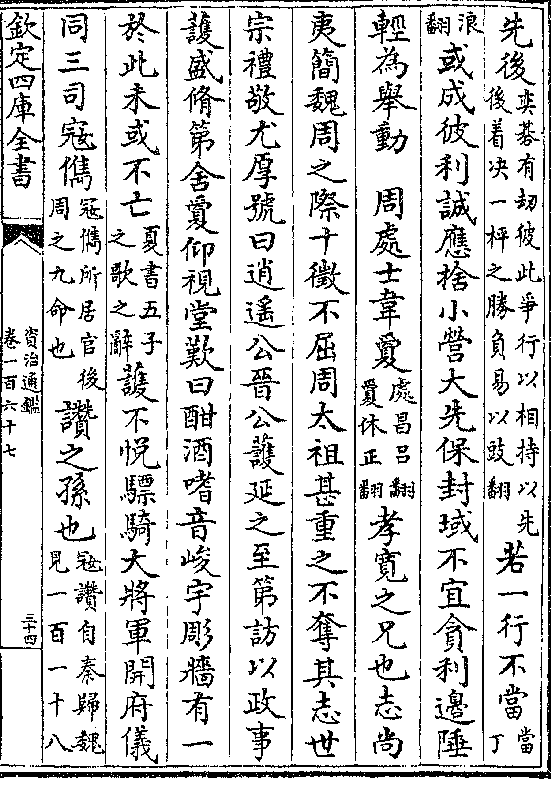 先後奕棊有劫彼此爭行以相持以先後着决一枰之勝負易以豉翻若一行不當當丁
浪翻或成彼利誠應捨小營大先保封域不宜貪利邊陲
輕為舉動　周處士韋敻處昌呂翻敻休正翻孝寬之兄也志尚
夷簡魏周之際十徵不屈周太祖甚重之不奪其志世
宗禮敬尤厚號曰逍遥公晉公護延之至第訪以政事
護盛脩第舍敻仰視堂歎曰酣酒嗜音峻宇彫牆有一
於此未或不亡夏書五子之歌之辭護不悦驃騎大將軍開府儀
同三司寇儁寇儁所居官後周之九命也讚之孫也寇讚自秦歸魏見一百一十八
欽定四庫全書
資治通鑑
卷一百六十七
三十四